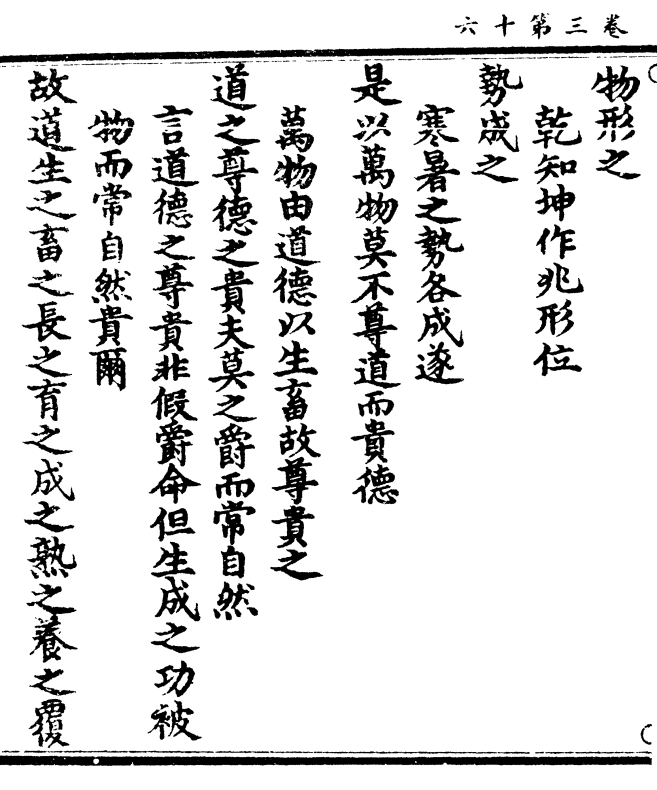 卷三第十六
物形之
乾知坤作兆形位
勢成之
寒暑之勢各成遂
是以萬物莫不尊道而貴德
萬物由道德以生畜故尊貴之
道之尊德之貴夫莫之爵而常自然
言道德之尊貴非假爵命但生成之功被
物而常自然貴爾
故道生之畜之長之育之成之熟之養之覆